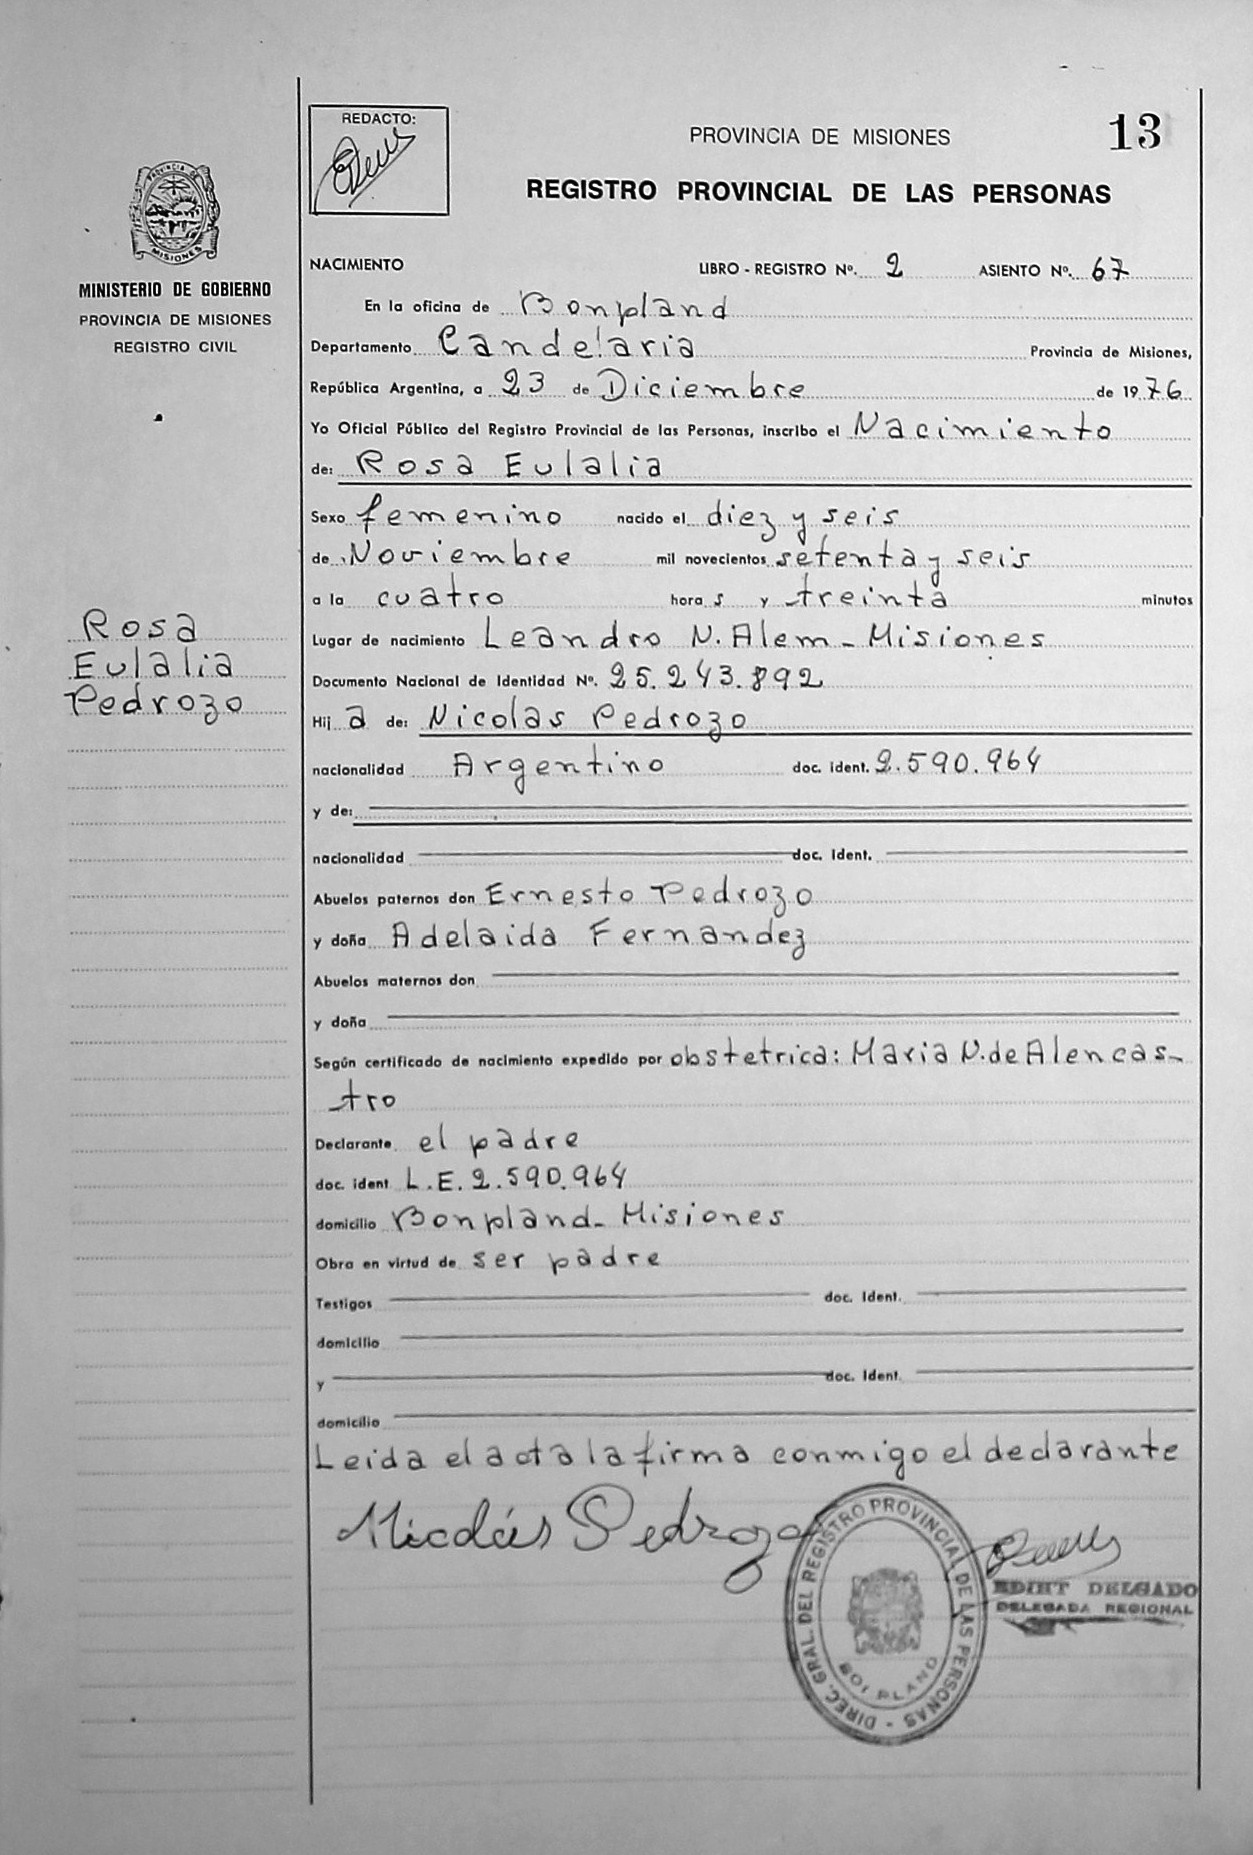 REDACTO:
PROVINCIA DE MISIONES
13
REGISTRO PROVINCIAL DE LAS PERSONAS
PROVINCIA DE
MISIONES
MINISTERIO DE GOBIERNO
PROVINCIA DE MISIONES
REGISTRO CIVIL
Rosa
Eulalia
Pedrozo
NACIMIENTO LIBRO - REGISTRO Nº. 2 ASIENTO Nº. 67
En la oficina de Bonpland
Departamento Candelaria Provincia de Misiones,
República Argentina, a 23 de Diciembre de 1976
Yo Oficial Público del Registro Provincial de las Personas, inscribo el Nacimiento
de: Rosa Eulalia
Sexo femenino nacido el diez y seis
de Noviembre mil novecientos setenta y seis
a la cuatro hora s y treinta minutos
Lugar de nacimiento Leandro N. Alem - Misiones
Documento Nacional de Identidad Nº. 25.243.892
Hij a de: Nicolas Pedrozo
nacionalidad Argentino doc. ident. 2.590.964
y de:
nacionalidad doc. Ident.
Abuelos paternos don Ernesto Pedrozo
y doña Adelaida Fernandez
Abuelos maternos don
y doña
Según certificado de nacimiento expedido por obstetrica: Maria N. de Alencas-
tro
Declarante el padre
doc. ident L.E. 2.590.964
domicilio Bonpland - Misiones
Obra en virtud de ser padre
Testigos doc. Ident.
domicilio
y doc. Ident.
domicilio
Leida el acta la firma conmigo el declarante
Nicolás Pedrozo
DIREC. GRAL. DEL REGISTRO PROVINCIAL DE LAS PERSONAS -
EDIHT DELGADO
DELEGADA REGIONAL